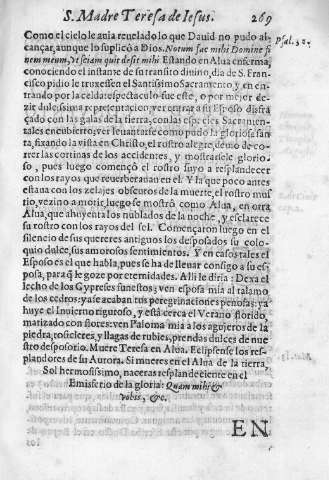 S. Madre Teresa de Iesus. 269
Como el cielo le auia reuelado lo que Dauid no pudo al-
cançar, aunque lo suplicò a Dios. Notum fac mihi Domine fi
nem meum, vt sciam quit desit mihi Estando en Alua enferma,
conociendo el instante de su transito diuino, dia de S. Fran-
cisco pidio le truxessen el Santissimo Sacramento y en en-
trando por la celda: espectaculo fue este, o por mejor de-
zir dulcissima representacion; ver entrar a su Esposo disfra
çado con las galas de la tierra, con las especies Sacramen-
tales encubierto; ver leuantarse como pudo la gloriosa san-
ta, fixando la vista en Christo, el rostro alegre, deuio de cor-
rer las cortinas de los accidentes, y mostrarsele glorio-
so, pues luego començò el rostro suyo a resplandecer
con los rayos que reuerberauan en el. Y la que poco antes
estaua con los zelajes obscuros de la muerte, el rostro mus
tio, vezino a morir, luego se mostrò como Alua, en otra
Alua, que ahuyenta los nublados de la noche, y esclarece
su rostro con los rayos del sol. Començaron luego en el
silencio de sus quereres antiguos los desposados su colo-
quio dulce, sus amorosos sentimientos. Y en casos tales el
Esposo es el que habla, pues se ha de lleuar consigo a su es-
posa, para q̃ le goze por eternidades. Alli le diria: Dexa el
lecho de los Cypreses funestos; ven esposa mia al talamo
de los cedros: ya se acaban tus peregrinaciones penosas; ya
huye el Inuierno riguroso, y està cerca el Verano florido,
matizado con flores: ven Paloma mia a los agujeros de la
piedra, rosicleres, y llagas de rubies, prendas dulces de nues
tro desposorio. Muere Teresa en Alua. Eclipsense los res-
plandores de su Aurora. Si mueres en el Alua de la tierra,
Sol hermosissimo, naceras resplandeciente en el
Emisferio de la gloria: Quam mihi &
vobis, &c.
EN